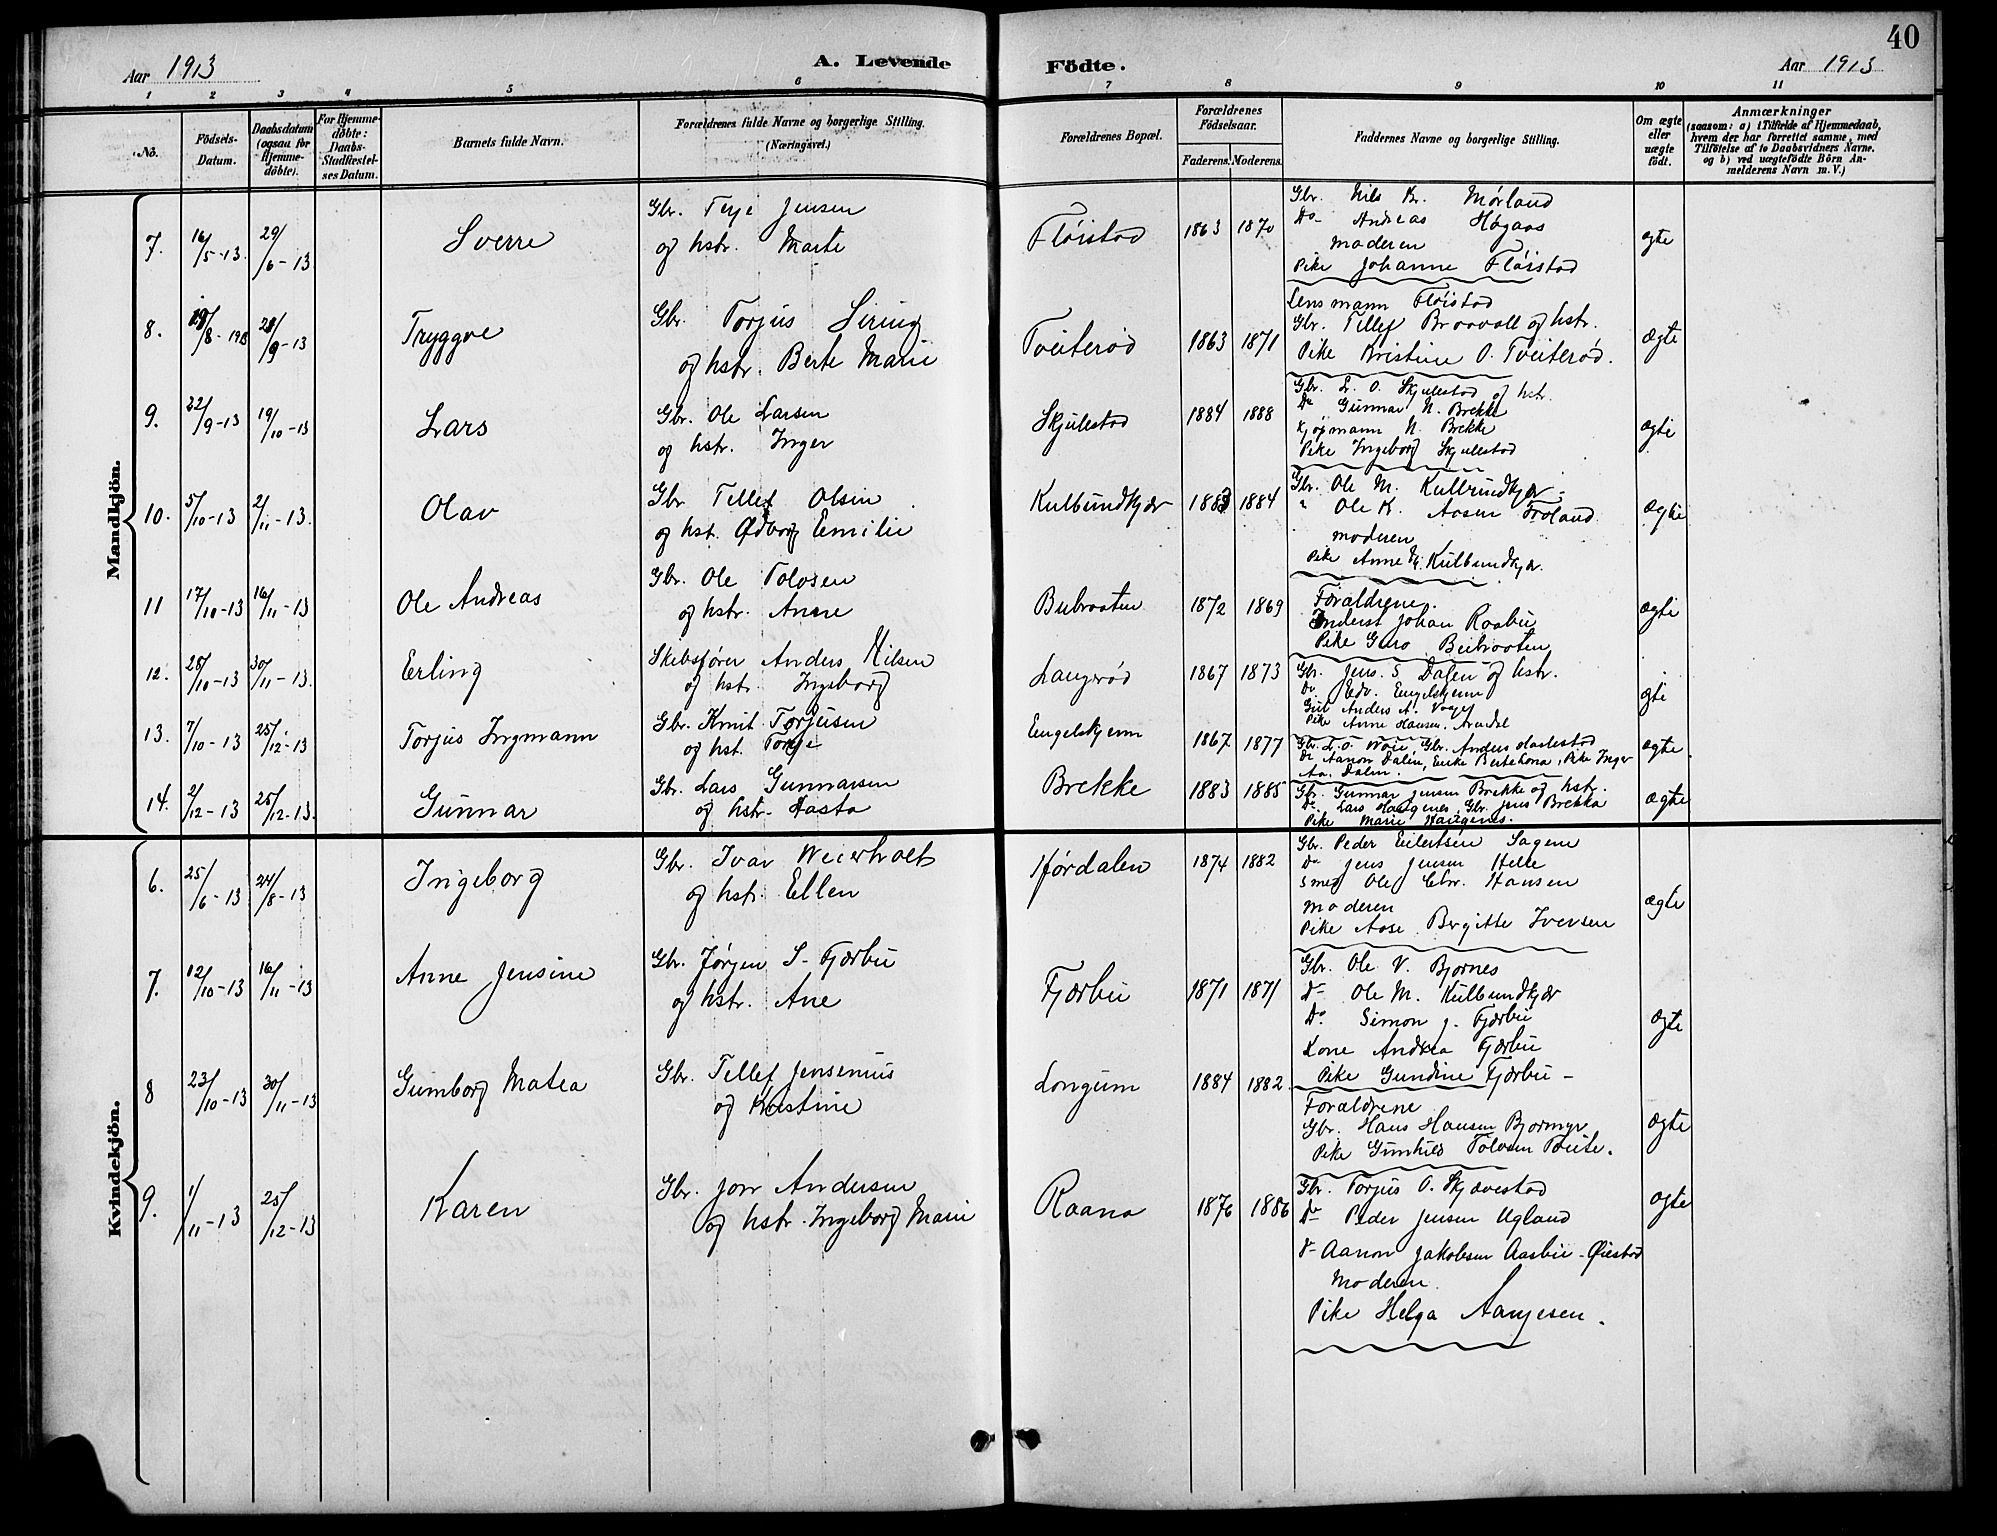 40
Aar 1913
A. Levende Födte.
Aar 1913
1 2 3 4 5 6 7 8 9 10 11
No.
Födsels-Datum.
Daabsdatum (ogsaa for Hjemme-döbte).
For Hjemme-döbte: Daabs-Stadfæstel-ses Datum.
Barnets fulde Navn.
Forældrenes fulde Navne og borgerlige Stilling. (Næringsvei.)
Forældrenes Bopæl.
Forældrenes Födselsaar.
Faderens. Moderens.
Faddernes Navne og borgerlige Stilling.
Om ægte eller uægte födt.
Anmærkninger
(saasom: a) i Tilfælde af Hjemmedaab, hvem der har forrettet samme, med Tilföielse af to Daabsvidners Navne. og b) ved uægtefödte Börn An-melderens Navn m. V.)
Mandkjön.
7. 16/5-13. 29/6-13 Sverre
Gbr. Terje Jensen
og hstr. Marte
Fløistad 1863 1870
Gbr. Nils Br. Mørland
Do Andreas Høgaas
moderen
Pike Johanne Fløistad
ægte
8. 28/9-13 Tryggve
Gbr. Torjus Siring
og hstr. Berte Marie
Tveiterød 1863 1871
Lensmann Fløistad
Gbr. Tellef Braavoll og hstr.
Pike Kristine O. Tveiterød.
ægte
9. 22/9-13 19/10-13 Lars
Gbr. Ole Larsen
og hstr. Inger
Skjulestad 1884 1888
Gbr. L. O. Skjulestad og hstr.
Do Gunnar N. Brekke
Kjøpmann N. Brekke
Pike Ingeborg Skjulestad
ægte
10. 5/10-13 2/11-13. Olav
Gbr Tellef Olsen
og hst. Ødborg Emilie
Kulbundkjær 1883 1884
Gbr. Ole M. Kulbundkjær
" Ole K. Aasen Froland
moderen
Pike Anne M. Kulbundkjær.
ægte
11 17/10-13 16/11-13 Ole Andreas
Gbr. Ole Tolvsen
og hstr. Anne
Bubraaten 1872 1869
Forældrene.
Inderst Johan Raabu
Pike Guro Bubraaten
ægte
12. 28/10-13 30/11-13. Erling
Skibsfører Anders Nilsen
og hstr. Ingeborg
Langerød 1867 1873
Gbr. Jens. S. Dalen og hstr.
Do. Edv. Engelskjønn
Gut Anders A.
Pike Anne Hansen. Arendal
ægte
13. 7/10-13 25/12-13 Torjus Ingmann
Gbr. Knut Torjusen
og hst. Torje
Engelskjønn 1867 1877
Gbr. L. O. Waie, Gbr. Anders Haslestad
Do Aanon Dalen, Enke Berte Lona, Pike Inger
Aa. Dalen.
ægte
14. 2/12-13 25/12-13. Gunnar
Gbr. Lars Gunnarsen
og hstr. Aasta
Brekke 1883 1885
Gbr. Gunnar Jensen Brekke og hstr.
Do. Lars Haugenes, Gbr. Jens Brekka
Pike Marie Haugenes.
ægte
Kvindekjön.
6. 25/6-13 24/8-13 Ingeborg
Gbr. Ivar Weierholt
og hstr. Ellen
Hørdalen 1874 1882
Gbr. Peder Eilertsen Sagene
Do Jens Jensen Helle
Smed Ole Chr. Hansen
Moderen
Pike Aase Birgitte Iversen
ægte
7. 12/10-13 16/11-13 Anne Jensine
Gbr. Jørgen S. Fjærbu
og hstr. Ane
Fjærbu 1871 1871
Gbr. Ole V. Bjornes
Do Ole M. Kulbundkjær
Do. Simon J. Fjærbu
Kone Andrea Fjærbu
Pike Gundine Fjærbu
ægte
8 23/10-13 30/11-13 Gunborg Matea
Gbr. Tellef Jensenius
og Kristine
Longum 1884 1882
Forældrene
Gbr. Hans Hansen Bjormyr
Pike Gunhild Tolvsen Tveite.
ægte
9. 1/11-13 25/12-13 Karen
Gbr. Jon Andersen
og hstr. Ingeborg Marie
Raana 1876 1886
Gbr. Torjus O. Skjævestad
Do Peder Jensen Ugland
Do Aanon Jakobsen Aasbie-Øiestad
Moderen
Pike Helga Aanjesen.
ægte